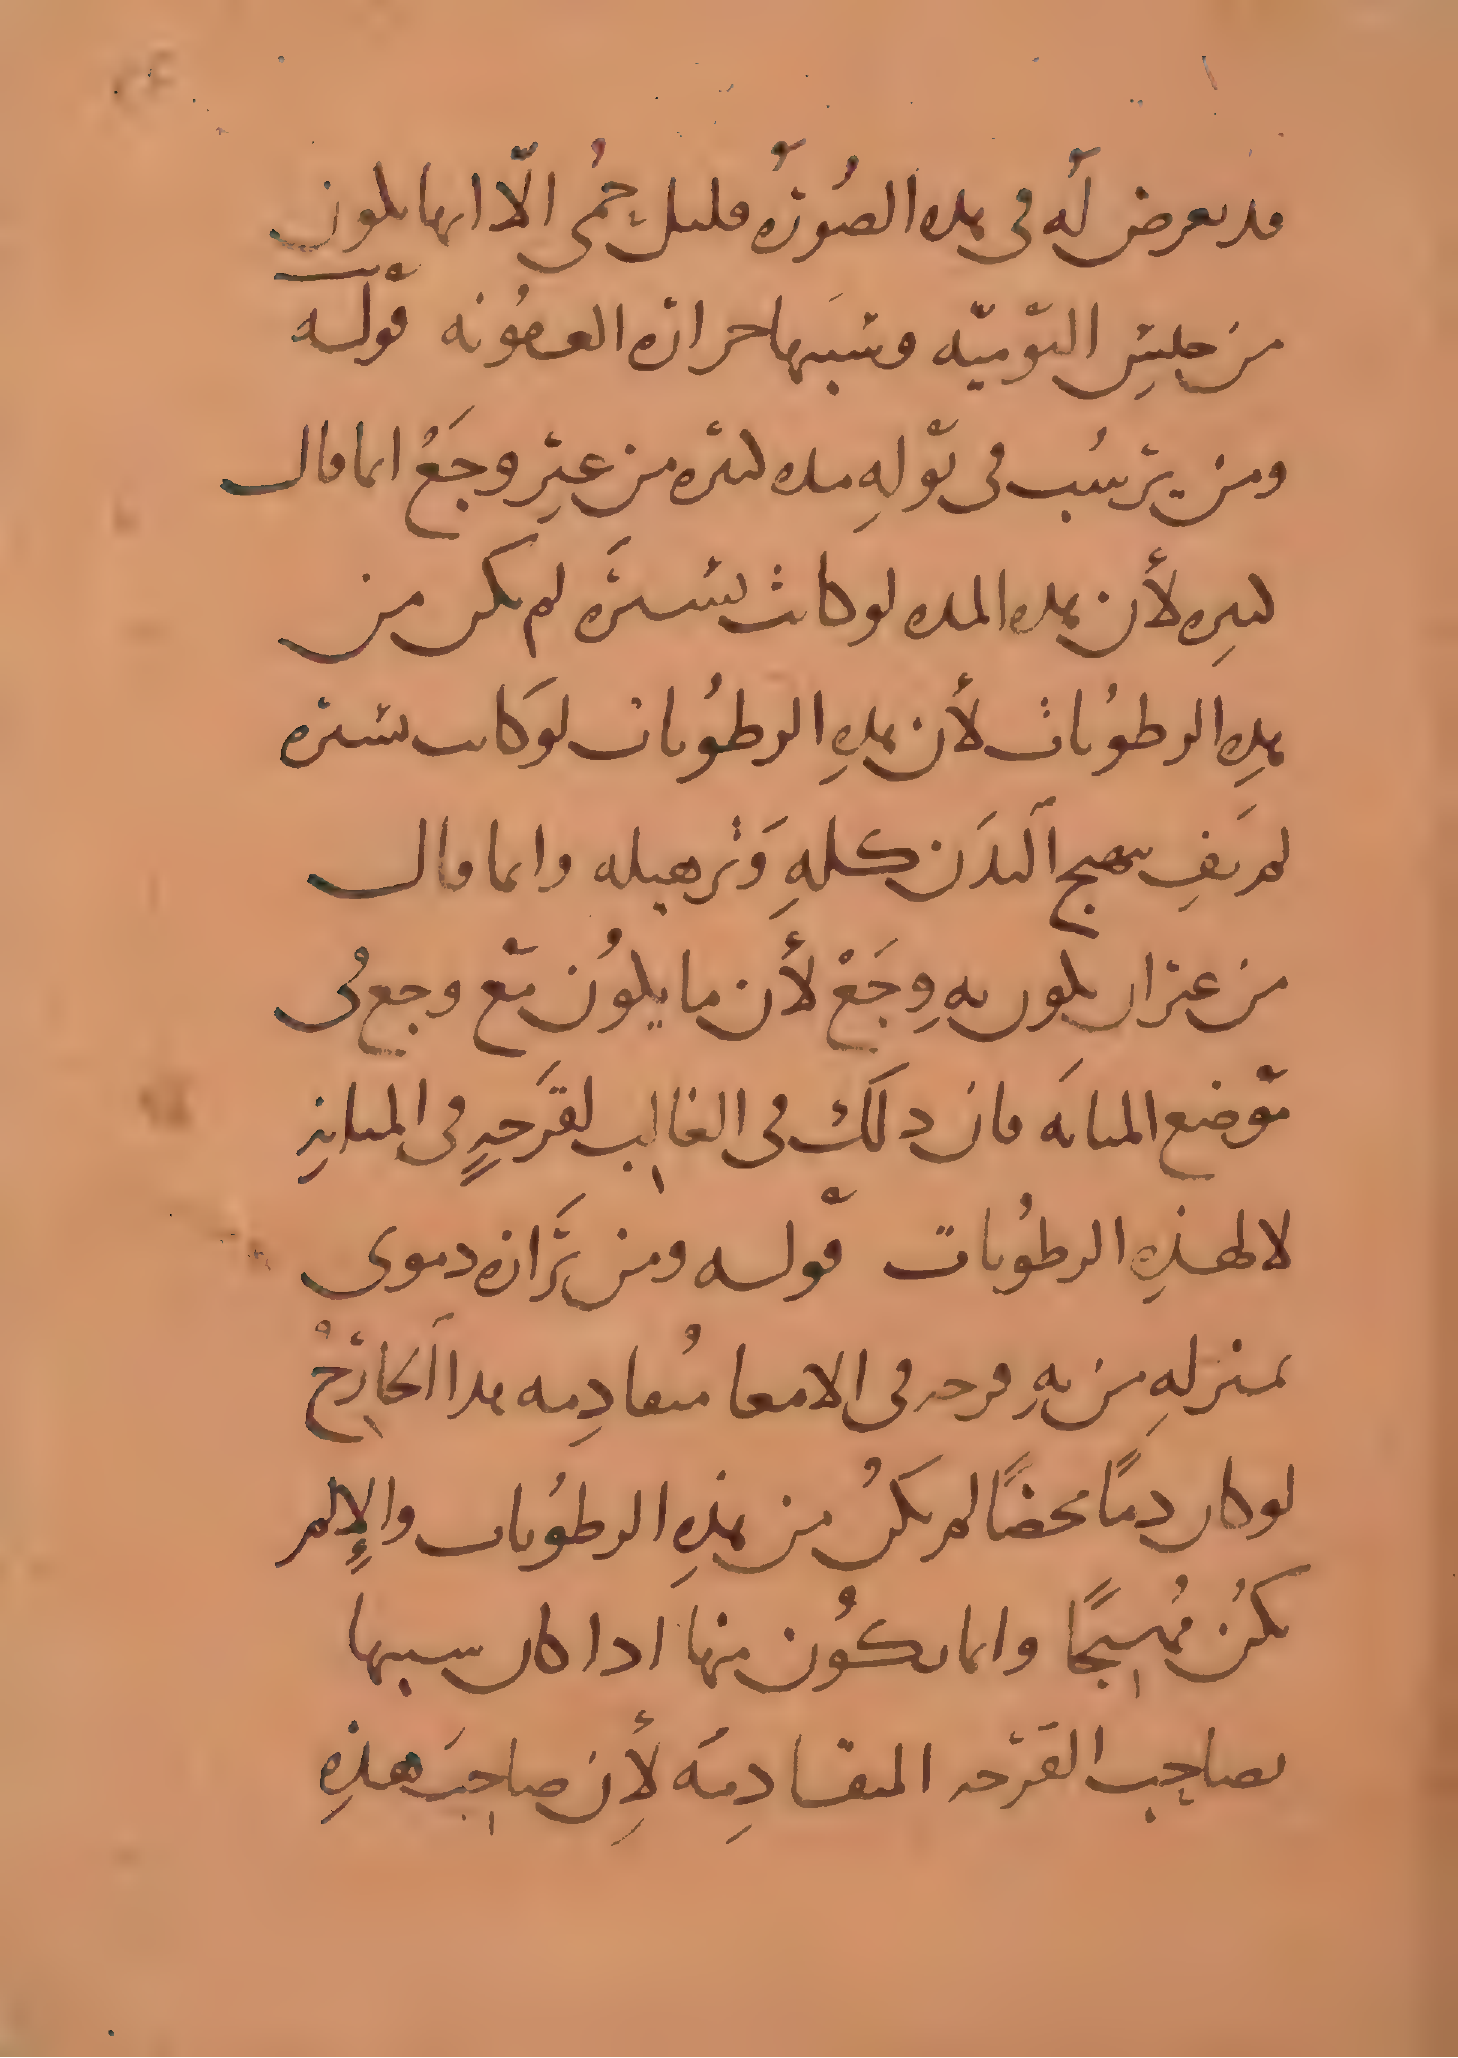 قد يعرض له في هذه الصورة قليل حمى الا انها يكون
من جنس اليومية وسببها حرارة العفونة قوله
ومن يرسب في بوله مده كثيرة من غير وجع انما قال
كثيره لأن هذه المده لو كانت يسيرة لم يكن من
هذه الرطوبات لأن هذه الرطوبات لو كانت يسيرة
لم يف بتهيج البدن كله وترهيله وانما قال
من غير ان يكون به وجع لأن ما يكون مع وجع في
موضع المثانه فان ذلك في الغالب لقرحة في المثانة
لا لهذه الرطوبات قوله ومن برازه دموى
بمنزله من به قرحه في الامعا متقادمه هذا الخارج
لو كان دما محضا لم يكن من هذه الرطوبات والا لم
يكن مهيجا وانما يكون منها اذا كان سببها
بصاحب القرحه المتقادمه لأن صاحب هذه